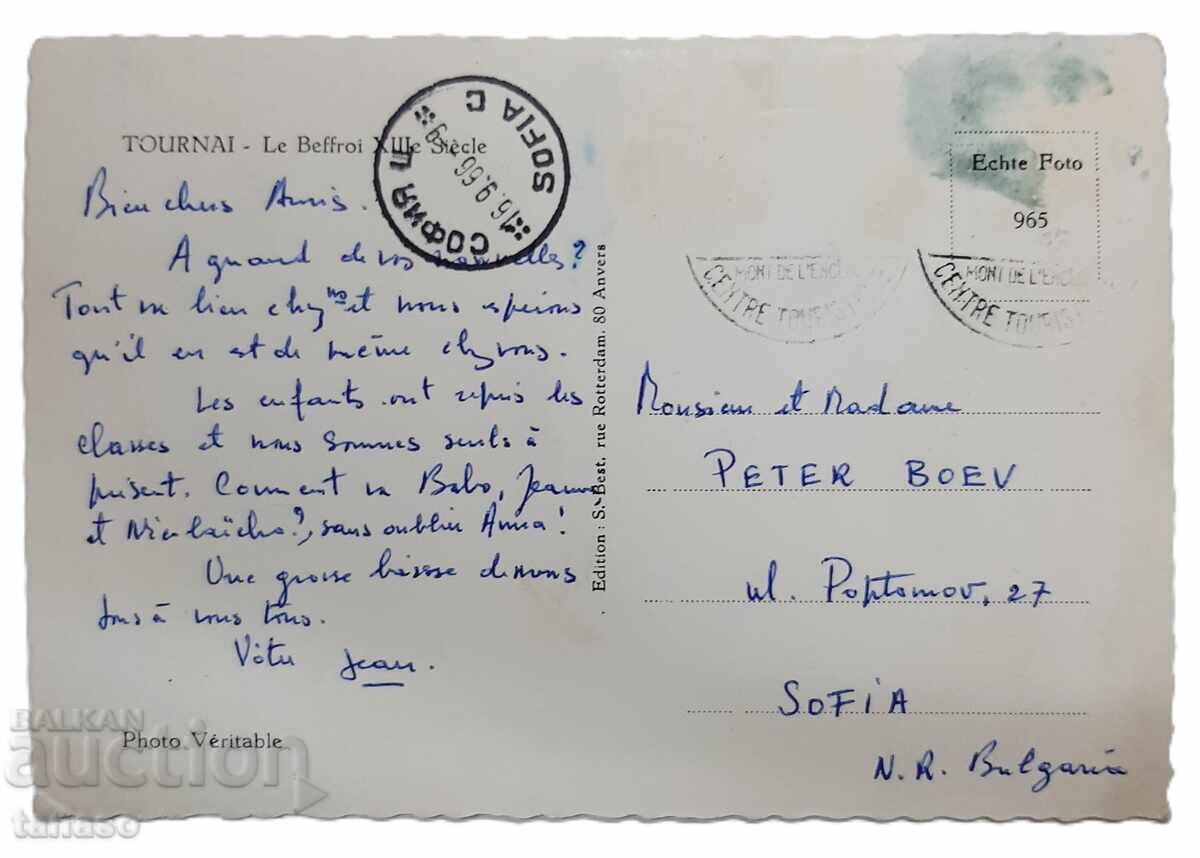 TOURNAI - Le Beffroi XIIIe Siècle
Bien chers Amis.
A quand de vos nouvelles?
Tout va bien chz nous et nous espérons
qu'il en est de même chz vous.
Les enfants ont repris les
classes et nous sommes seuls à
présent. Comment va Babo, Jeanne
et Nicolaïcho?, sans oublier Anna!
Une grosse baisse de nous
tous à vous tous.
Votre Jean.
Photo Véritable
СОФИЯ Ц
SOFIA C
16.9.66 - 9
Edition : S. Best, rue Rotterdam, 80 Anvers
Echte Foto
965
MONT DE L'ENCLUS
CENTRE TOURIST
MONT DE L'ENCLUS
CENTRE TOURIST
Monsieur et Madame
PETER BOEV
ul. Poptomov, 27
SOFIA
N.R. Bulgaria
BALKAN
auction
tanaso